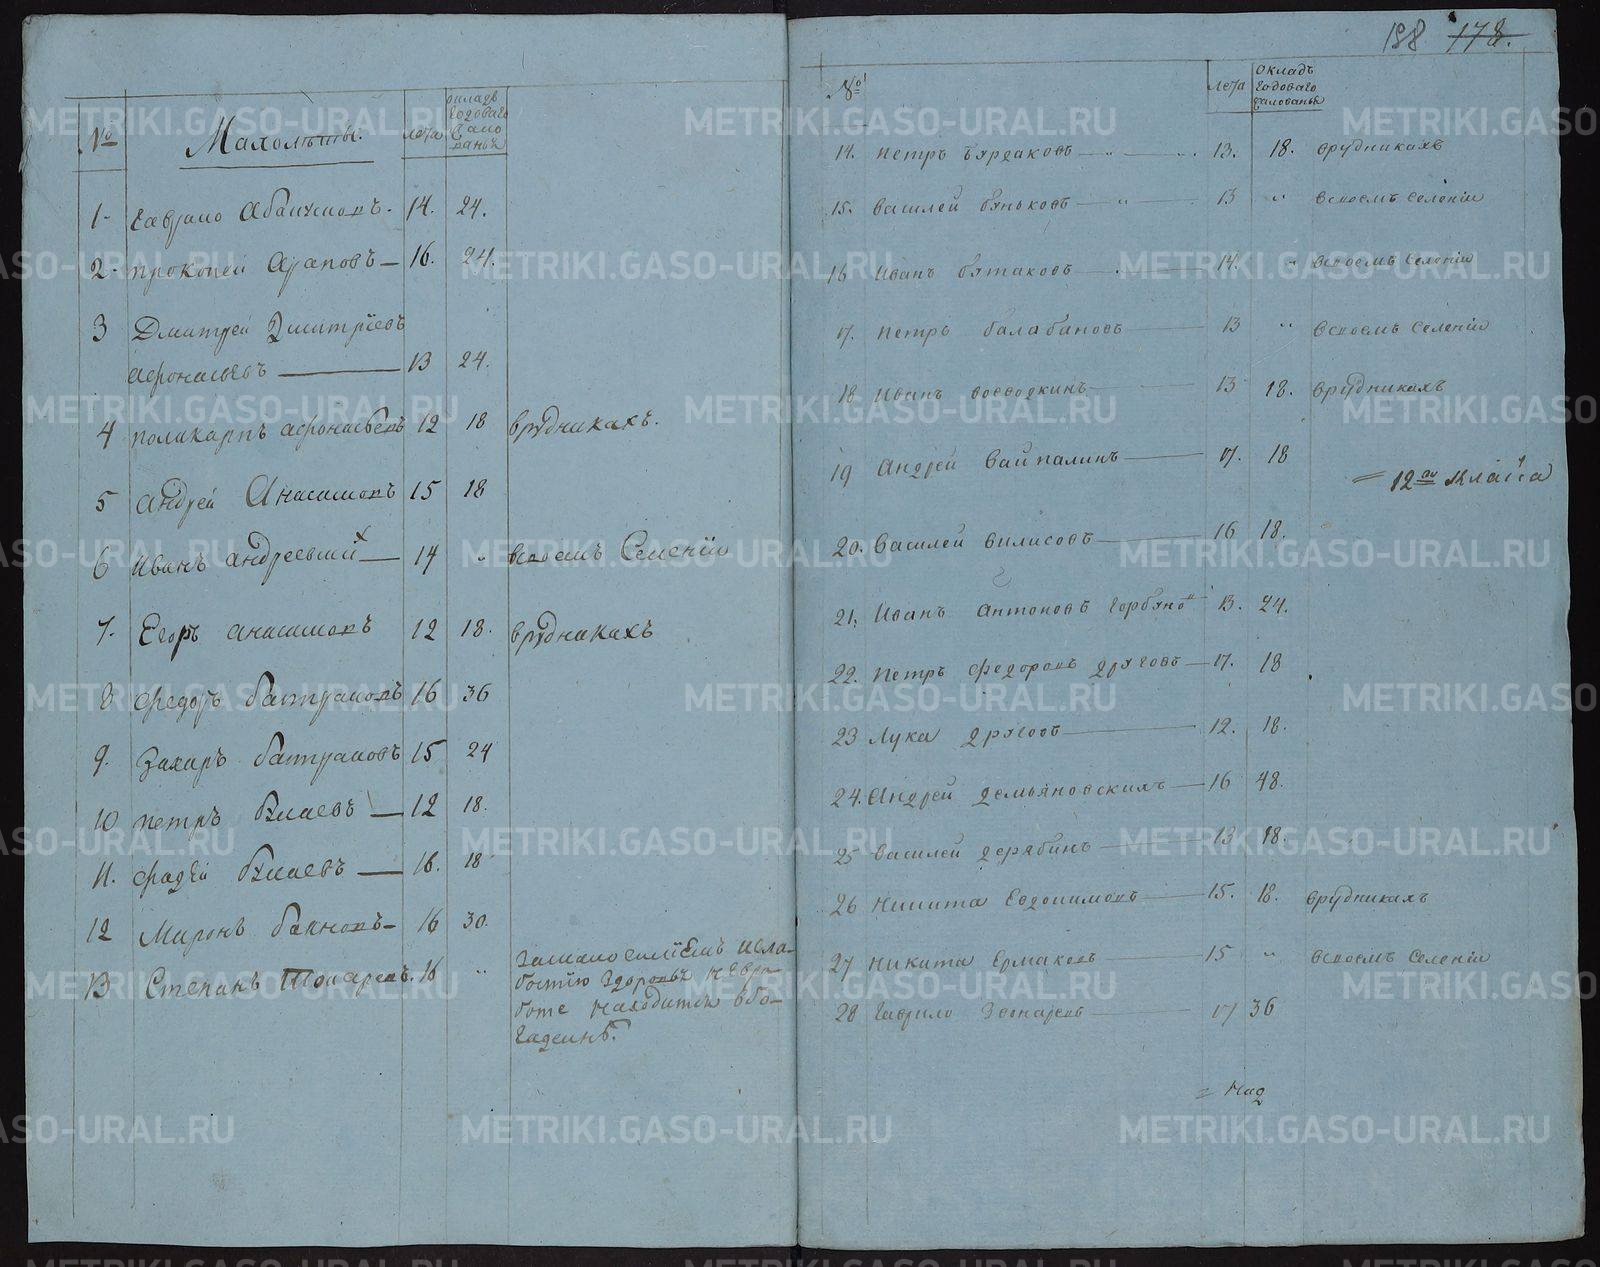 № Малолѣтны. лета окладъ годоваго жалованья
1. Гаврило Абакумовъ. 14. 24.
2. прокопей Араповъ 16. 24.
3 Дмитрей Дмитріевъ
афонасьевъ 13 24.
4 поликарпъ афонасьевъ 12 18 врудникахъ.
5 андрей Анисимовъ 15 18
6 Иванъ андреевский 14 " всвоемъ Селеніи
7. Егоръ анисимовъ 12 18. врудникахъ
8 федоръ батраковъ 16 36
9. Захаръ батраковъ 15 24
10 петръ 12 18.
11. фадей 16. 18
12 Миронъ 16 30.
13 Степанъ 16 "
боте находится вбо-
гаделнѣ.
188 178.
№ лета окладъ годоваго жалованья
14. петръ бурдаковъ 13. 18. врудникахъ
15. василей 13 " всвоемъ селеніи
16 Иванъ 14. " всвоемъ Селеніи
17. петръ балабановъ 13 " всвоемъ Селеніи
18 Иванъ воеводкинъ 13 18. врудникахъ
19 андрей 17. 18
12го класса
20. василей вилисовъ 16 18.
21. Иванъ антоновъ 13. 24.
22. петръ федоровъ дряговъ 17. 18
23 лука дряговъ 12. 18.
24. андрей демьяновскихъ 16 48.
25 василей дерябинъ 13 18.
26 никита Евдокимовъ 15. 18. врудникахъ
27 никита Ермаковъ 15 " всвоемъ селеніи
28 гаврило Звонаревъ 17 36
= над
METRIKI.GASO-URAL.RU